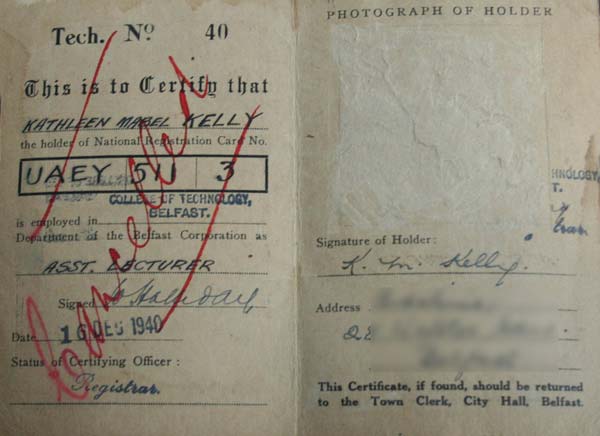 Tech. No 40
This is to Certify that
KATHLEEN MABEL KELLY
the holder of National Registration Card No.
UAEY 511 3
COLLEGE OF TECHNOLOGY,
BELFAST.
is employed in
Department of the Belfast Corporation as
ASST. LECTURER
Signed
Date 16 DEC 1940
Status of Certifying Officer :
Registrar.
Cancelled
PHOTOGRAPH OF HOLDER
HNOLOGY,
T.
Signature of Holder :
K. M. Kelly.
Address
This Certificate, if found, should be returned
to the Town Clerk, City Hall, Belfast.